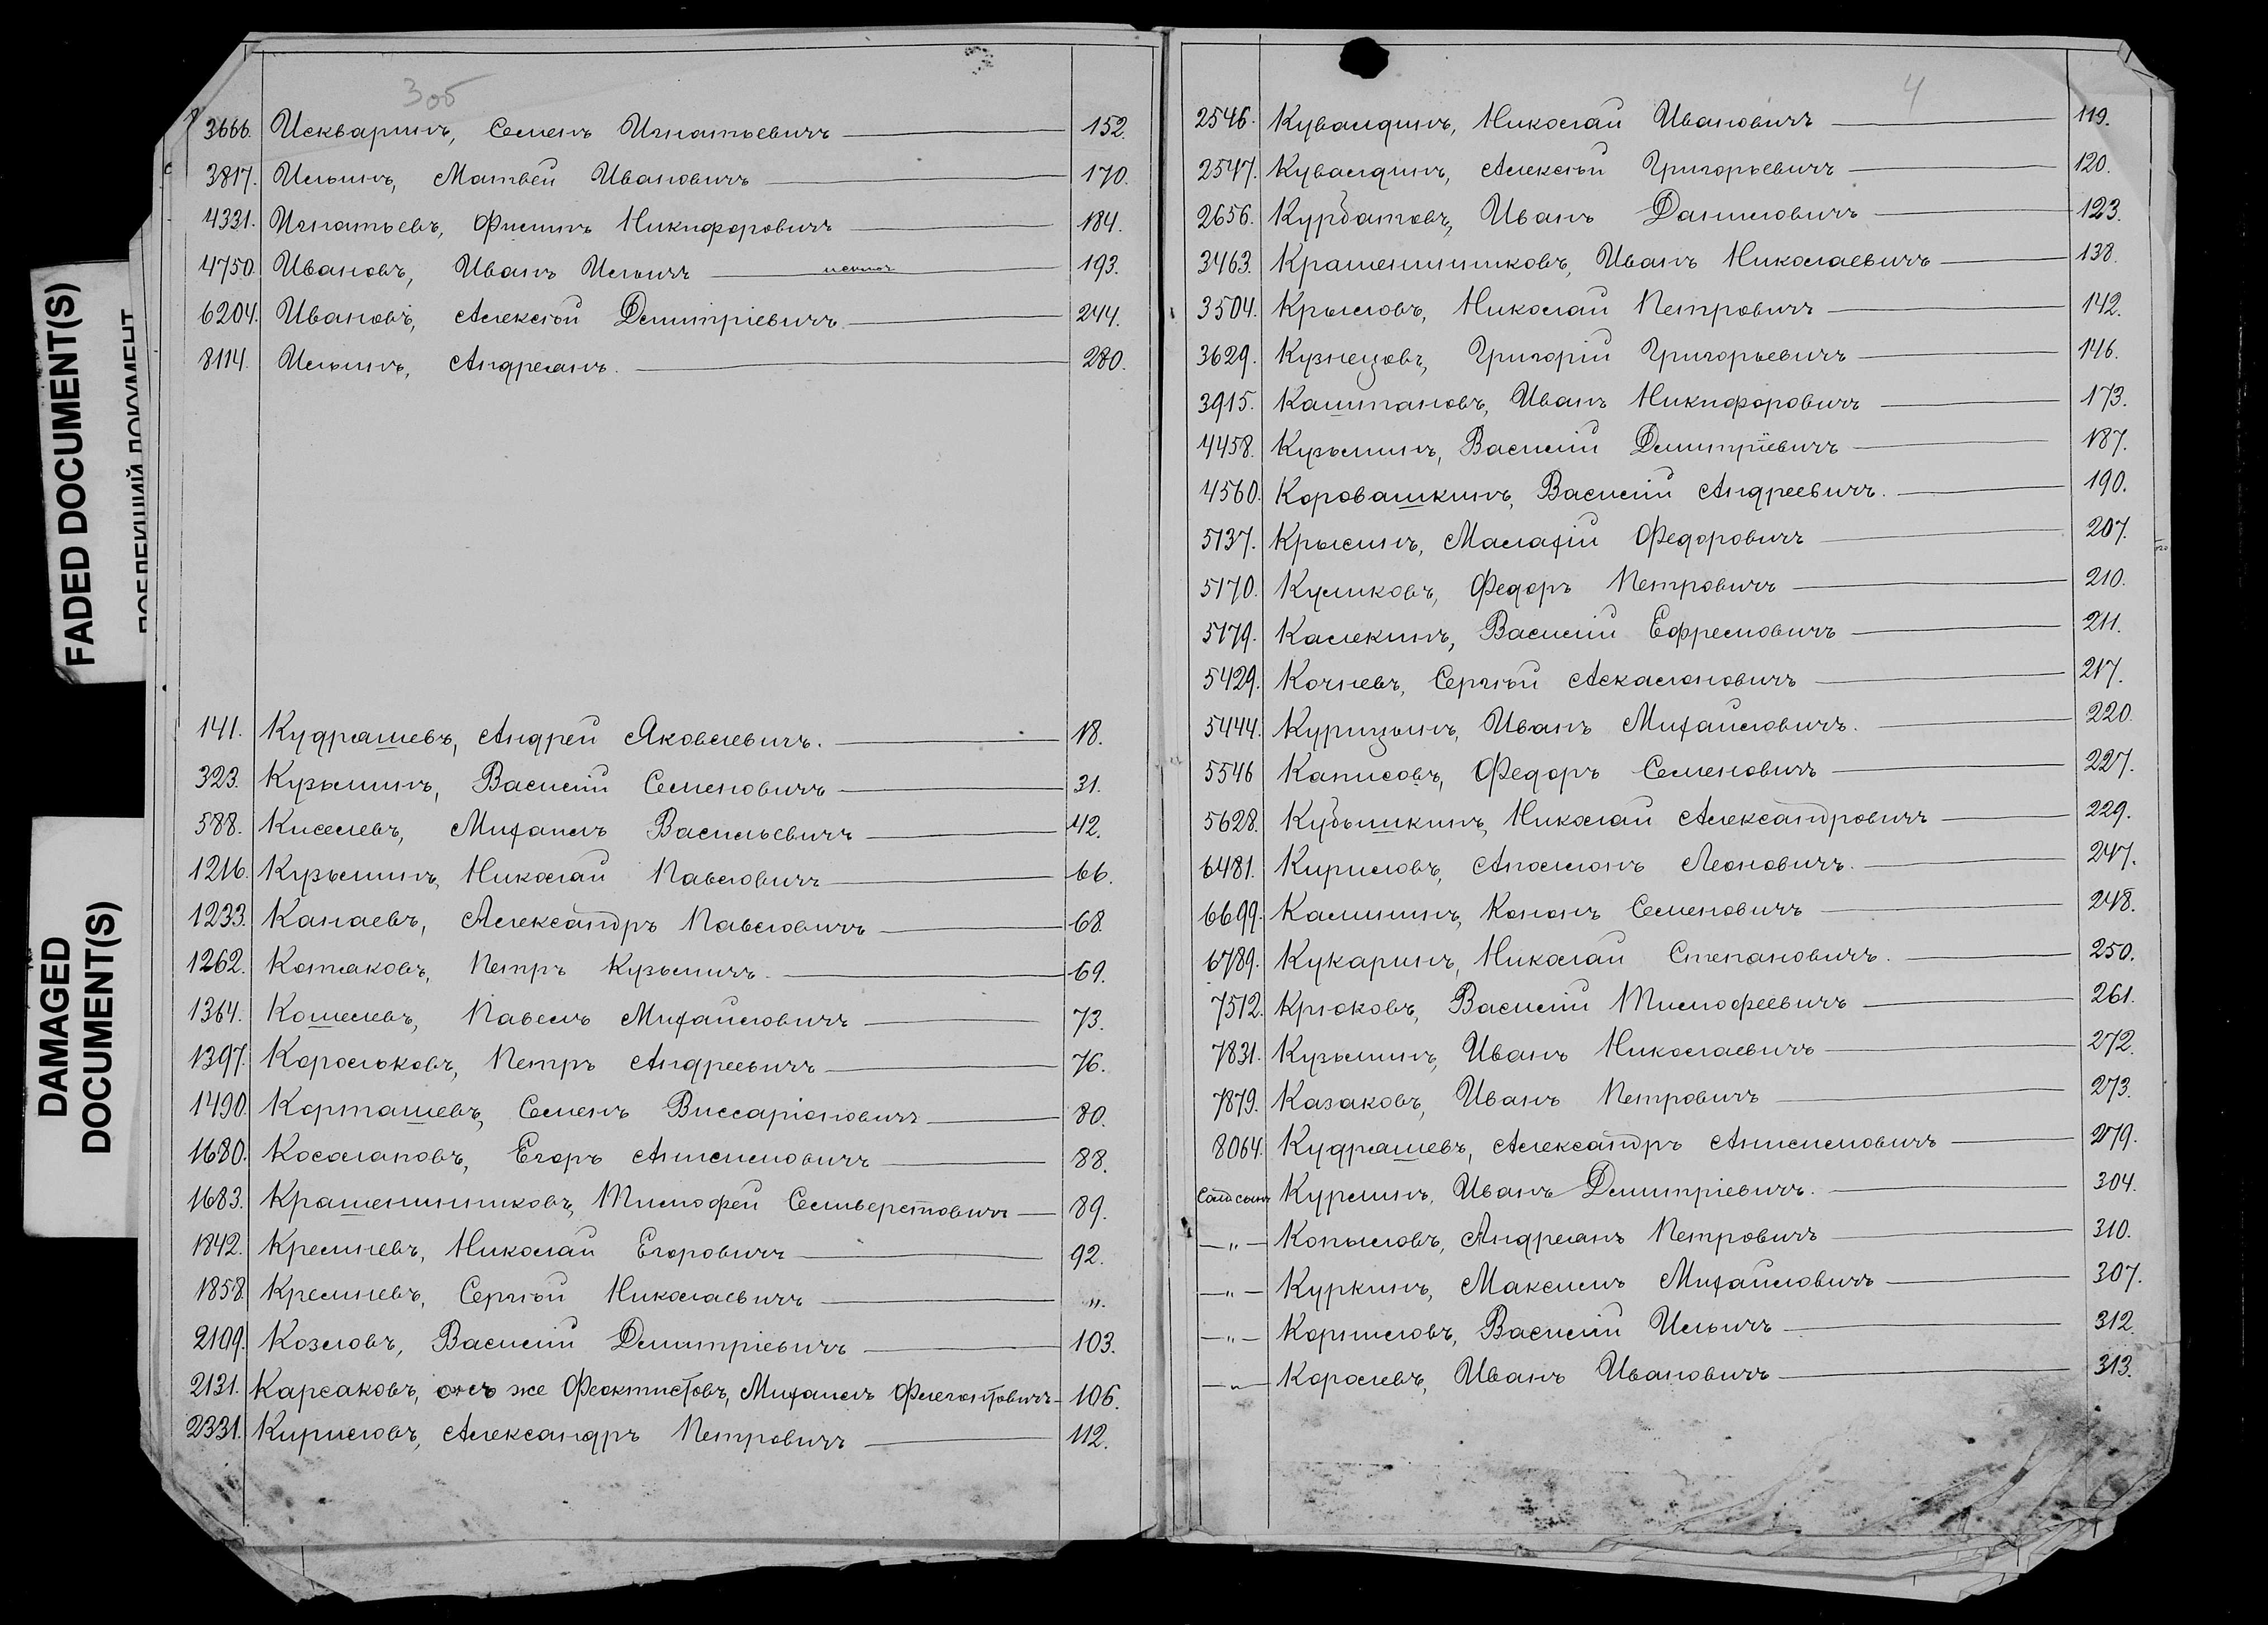 FADED DOCUMENT(S)
DAMAGED
DOCUMENT(S)
3об
3666. Искваринъ, Семенъ Игнатьевичъ 152.
3817. Ильинъ, Матвей Ивановичъ 170.
4331. Игнатьевъ, Филиппъ Никифоровичъ 184.
4750. Ивановъ, Иванъ Ильичъ 193.
6204. Ивановъ, Алексѣй Дмитріевичъ 244.
8114. Ильинъ, Андреянъ. 280.
141. Кудряшевъ, Андрей Яковлевичъ. 18.
323. Кузьминъ, Василій Семеновичъ 31.
588. Киселевъ, Михаилъ Васильевичъ 42.
1216. Кузьминъ, Николай Павловичъ 66.
1233. Канаевъ, Александръ Павловичъ 68.
1262. Котяковъ, Петръ Кузьмичъ. 69.
1364. Кошелевъ, Павелъ Михайловичъ 73.
1397. Корольковъ, Петръ Андреевичъ 76.
1490. Карташевъ, Семенъ Виссаріоновичъ 80.
1680. Косолаповъ, Егоръ Анисимовичъ 88.
1683. Крашенинниковъ, Тимофей Сельверстовичъ 89.
1842. Кремневъ, Николай Егоровичъ 92.
1858. Кремневъ, Сергѣй Николаевичъ „.
2109. Козловъ, Василій Дмитріевичъ 103.
2131. Карсаковъ, онъ же Феоктистовъ, Михаилъ Флегонтовичъ 106.
2331. Кириловъ, Александръ Петровичъ 112.
4
2546. Кувалдинъ, Николай Ивановичъ 119.
2547. Кувалдинъ, Алексѣй Григорьевичъ 120.
2656. Курбатовъ, Иванъ Даниловичъ 123.
3463. Крашенинниковъ, Иванъ Николаевичъ 138.
3504. Крыловъ, Николай Петровичъ 142.
3629. Кузнецовъ, Григорій Григорьевичъ 146.
3915. Каштановъ, Иванъ Никифоровичъ 173.
4458. Кузьминъ, Василій Дмитріевичъ 187.
4560. Коровашкинъ, Василій Андреевичъ. 190.
5137. Крысинъ, Малахій Федоровичъ 207.
5170. Куликовъ, Федоръ Петровичъ 210.
5179. Калекинъ, Василій Ефремовичъ 211.
5429. Кочневъ, Сергѣй Аскалоновичъ 217.
5444. Курицынъ, Иванъ Михайловичъ. 220.
5546 Каписовъ, Федоръ Семеновичъ 227.
5628. Кубышкинъ, Николай Александровичъ 229.
6481. Кириловъ, Аполлонъ Леоновичъ. 247.
6699. Калининъ, Кононъ Семеновичъ 248.
6789. Кукаринъ, Николай Степановичъ. 250.
7512. Крюковъ, Василій Тимофеевичъ 261.
7831. Кузьминъ, Иванъ Николаевичъ 272.
7879. Казаковъ, Иванъ Петровичъ 273.
8064. Кудряшевъ, Александръ Анисимовичъ 279.
Курминъ, Иванъ Дмитріевичъ. 304.
—„— Копыловъ, Андреянъ Петровичъ 310.
—„— Куркинъ, Максимъ Михайловичъ 307.
—„— Корниловъ, Василій Ильичъ 312.
—„— Королевъ, Иванъ Ивановичъ 313.